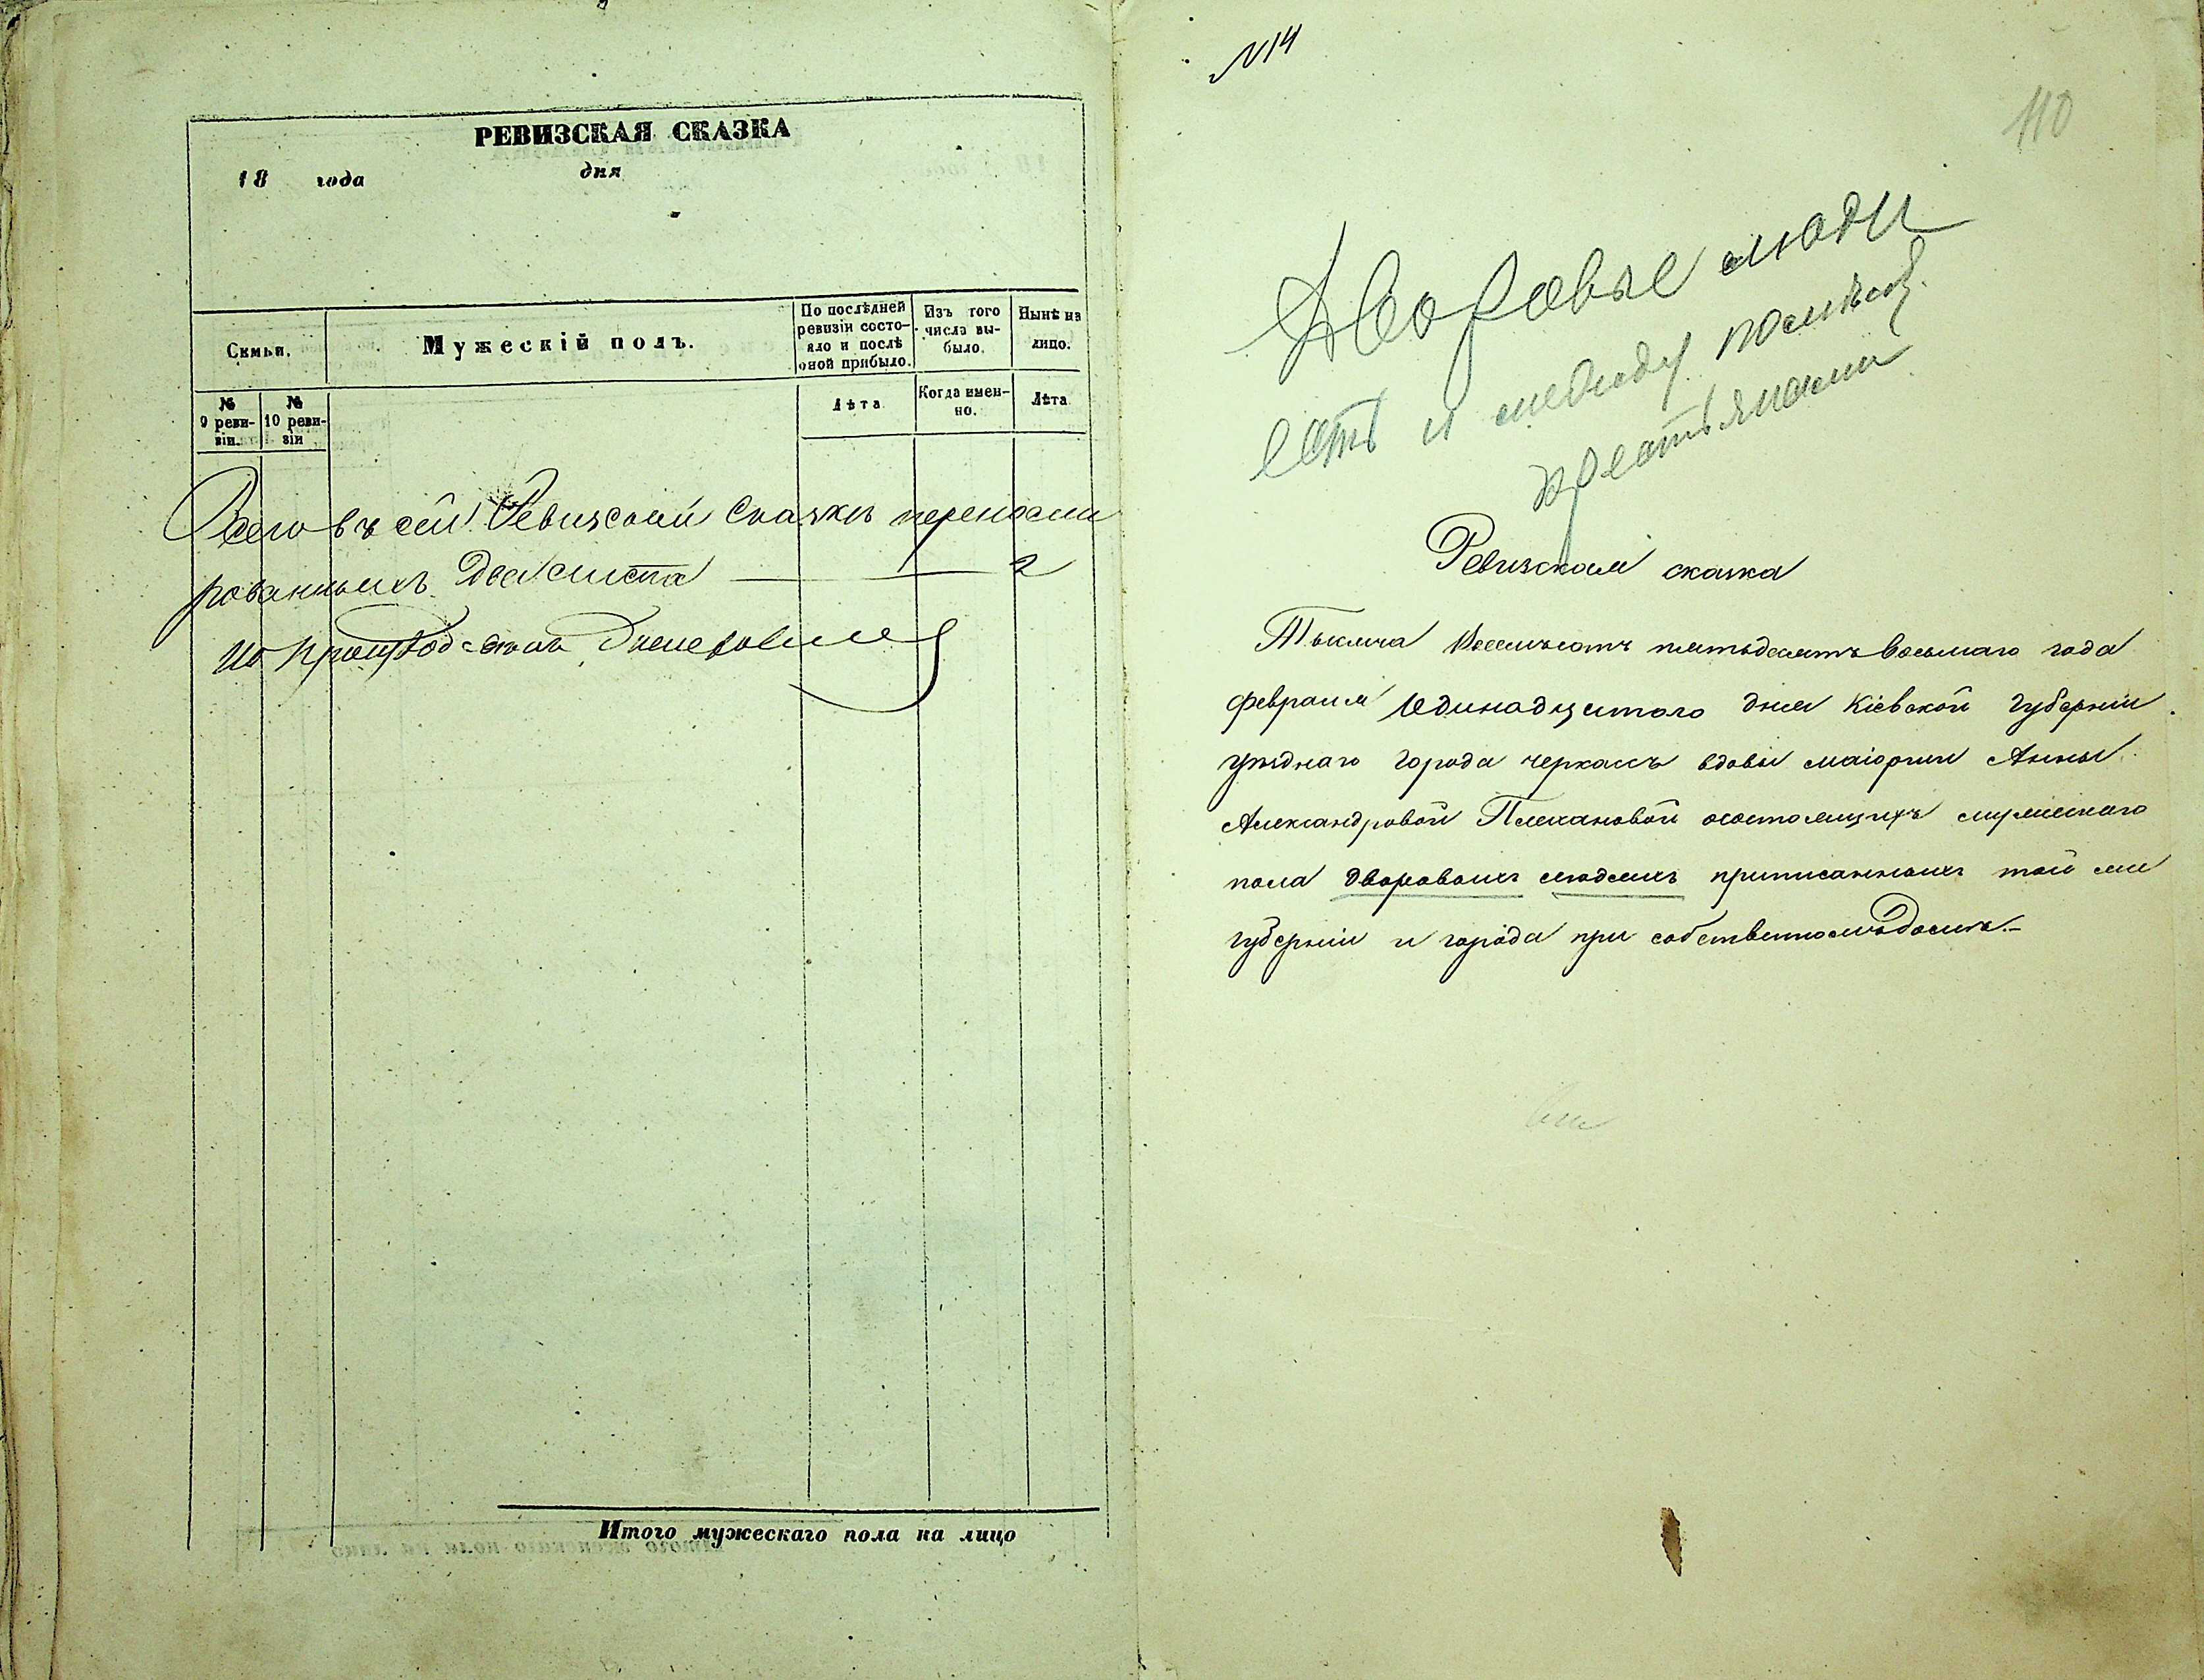 РЕВИЗСКАЯ СКАЗКА
18 года дня
Семьи.
Мужескій полъ.
По послѣдней ревизіи состо-
яло и послѣ
оной прибыло.
Изъ того
числа вы-
было.
Нынѣ на
лицо.
№
9 реви-
зіи.
№
10 реви-
зіи
Лѣта
Когда имен-
но.
Лѣта
Всего въ сей Ревизской Сказкѣ перенуме
рованныхъ Два листа 2
Итого мужескаго пола на лицо
№14
110
Дворовые люди
есть и между помѣщ.
крестьянами
Ревизская сказка
Тысяча Восемьсотъ пятьдесятъ Восьмаго года
февраля Единадцатого дня Кіевской Губерніи
уѣзднаго города черкассъ вдовы маіорши Анны
Александровой Плехановой о состоящихъ мужескаго
пола дворовыхъ людяхъ приписанныхъ той же
губерніи и города при собственномъ Домѣ.